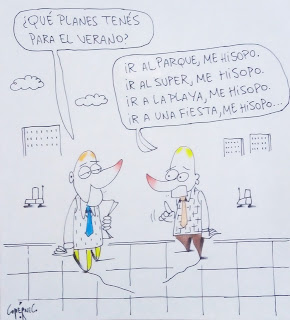 ¿QUÉ PLANES TENÉS
PARA EL VERANO?
IR AL PARQUE, ME HISOPO.
IR AL SUPER, ME HISOPO.
IR A LA PLAYA, ME HISOPO.
IR A UNA FIESTA, ME HISOPO...